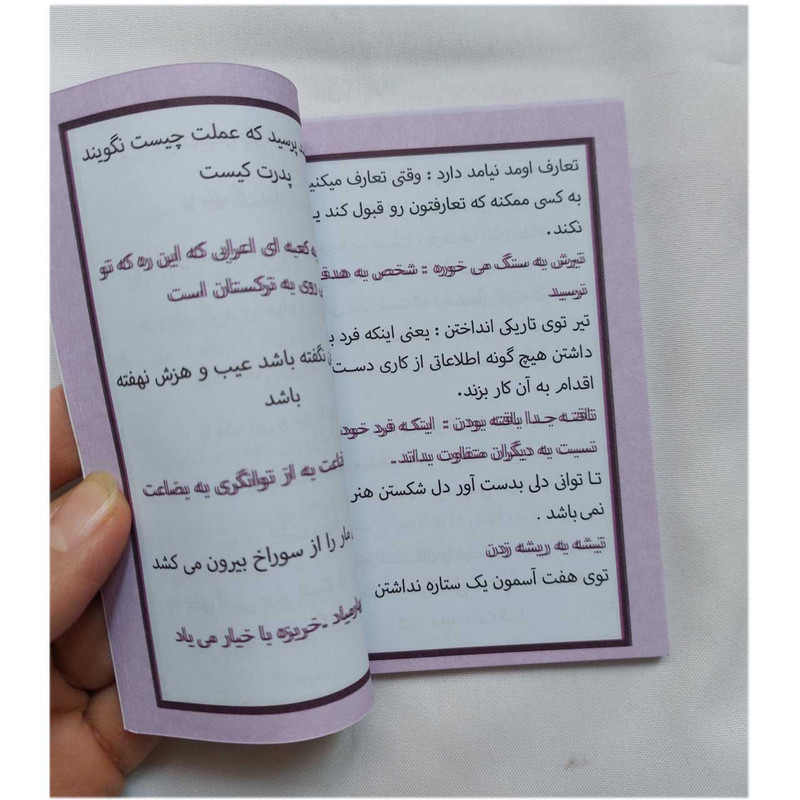 تعارف اومد نیامد دارد : وقتی تعارف میکنی
به کسی ممکنه که تعارفتون رو قبول کند یـ
نکند .
تیرش به سنگ می خوره : شخص به هدفـ
نرسید
تیر توی تاریکی انداختن : یعنی اینکه فرد بـ
داشتن هیچ گونه اطلاعاتی از کاری دست
اقدام به آن کار بزند.
تافته جدا بافته بودن : اینکه فرد خود
نسبت به دیگران متفاوت بداند .
تا توانی دلی بدست آور دل شکستن هنر
نمی باشد .
تیشه به ریشه زدن
توی هفت آسمون یک ستاره نداشتن
پرسید که عملت چیست نگویند
پدرت کیست
به کعبه ای اعرابی که این ره که تو
روی به ترکستان است
نگفته باشد عیب و هزش نهفته
باشد
به از توانگری به بضاعت
مار را از سوراخ بیرون می کشد
خربزه با خیار می یاد